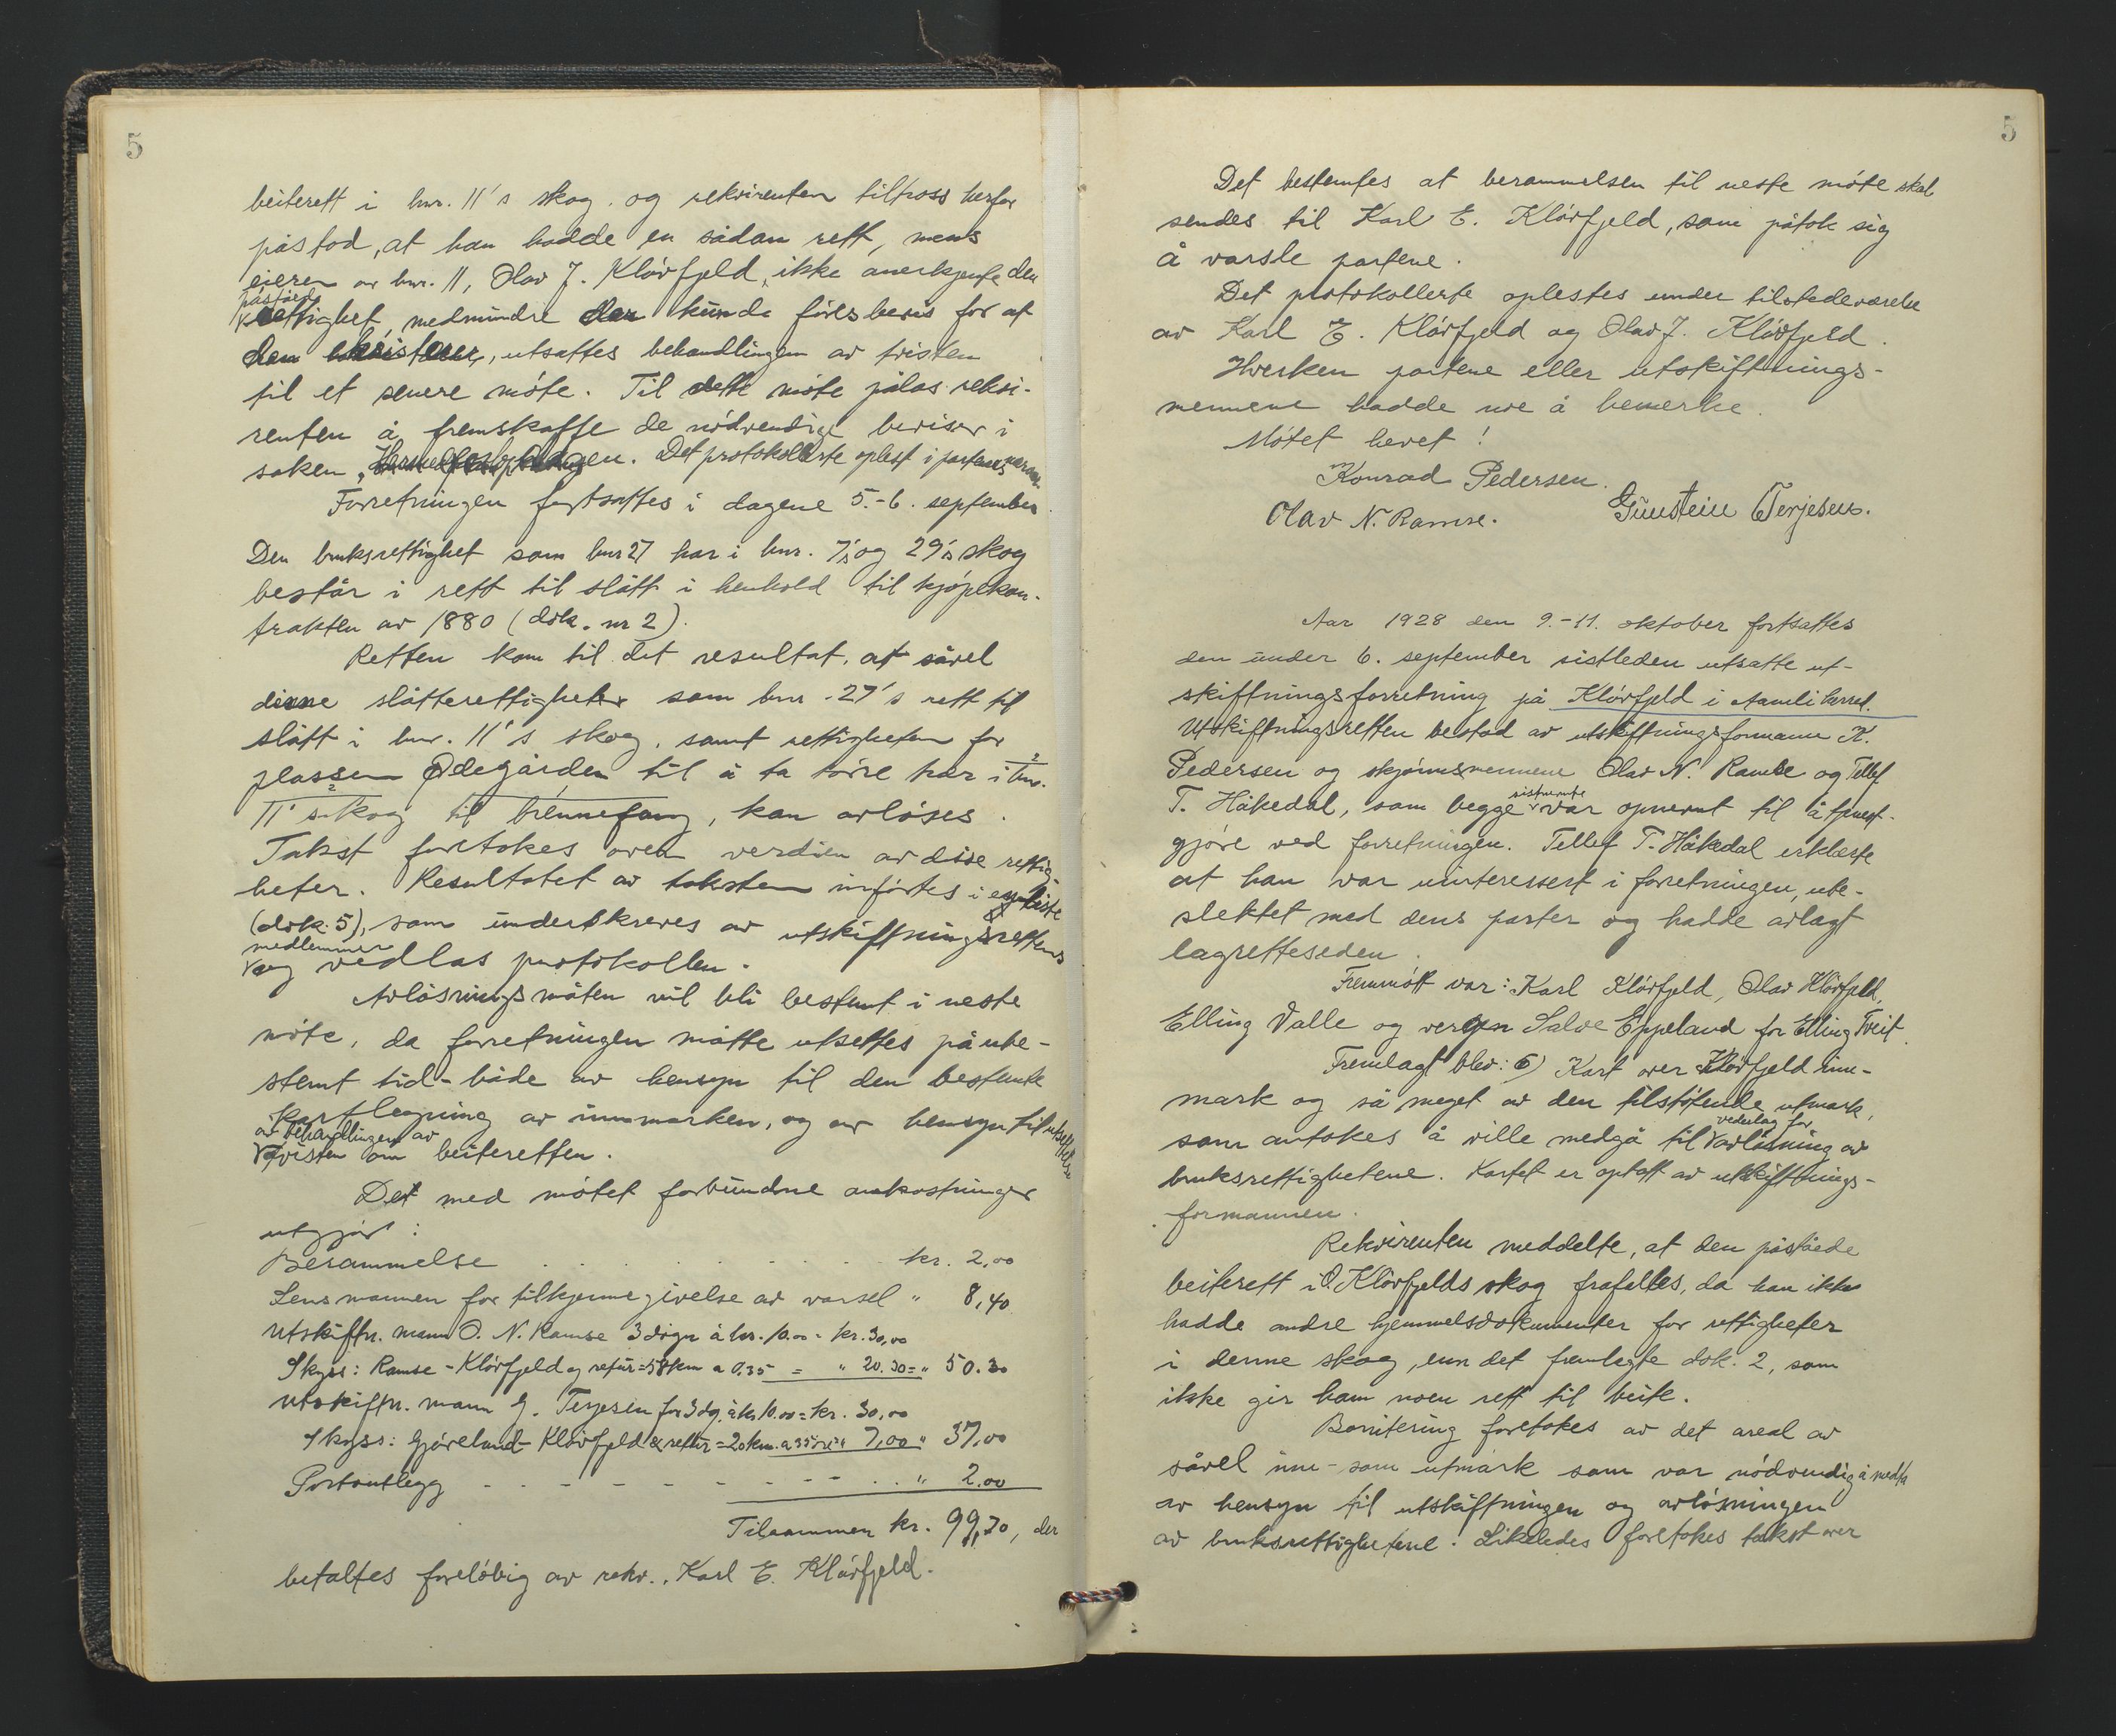 5
beiterett i bnr. 11's skog. og rekvirenten tiltross herfor
påstod, at han hadde en sådan rett, mens
eieren av bnr. 11, Olav J. Klóvfjeld, ikke anerkjente den
påståede
rettighet, medmindre der kunde föres bevis for at
den eksisterer, utsattes behandlingen av tvisten
til et senere móte. Til dette móte pålas rekvi-
renten å fremskaffe de nódvendige beviser i
saken. Det protokollerte oplest i partenes nærvær.
Forretningen fortsattes i dagene 5.-6. september.
Den bruksrettighet som bnr 27 har i bnr. 7's og 29's skog
består i rett til slått i henhold til kjópekon-
trakten av 1880 (dok. nr 2).
Retten kom til det resultat, at såvel
disse slåtterettigheter som bnr. 27's rett til
slått i bnr. 11's skog, samt rettigheten for
plassen Ødegården til å ta tórre trær i bnr.
11's skog til brennefang, kan avlóses.
Takst foretokes over verdien av disse rettig-
heter. Resultatet av taksten infórtes i en liste
(dok. 5), som underskreves av utskiftningsrettens
medlemmer
og vedlas protokollen.
Avlósningsmåten vil bli bestemt i neste
móte, da forretningen måtte utsettes på ube-
stemt tid - både av hensyn til den bestemte
kartlegning av innmarken, og av hensyn til utsettelsen
av behandlingen av
tvisten om beiteretten.
Det med mótet forbundne omkostninger
utgjór:
Berammelse . . . . . . . kr. 2,00
Lensmannen for tilkjennegivelse av varsel " 8,40
Utskiftn. mann O. N. Ramse 3 dógn à kr. 10.00 = kr. 30,00
Skyss: Ramse - Klóvfjeld og retur = 58 km a 0.35 = " 20.30 = " 50.30
Utskiftn. mann G. Terjesen for 3 dg. à kr. 10.00 = kr. 30,00
Skyss: Gjóvland - Klóvfjeld & retur = 20 km. a 35 öre " 7,00 " 37,00
Portoutlegg - - - - - - - - . . " 2.00
Tilsammen kr. 99,70, der
betaltes forelóbig av rekv. Karl E. Klóvfjeld.
5
Det bestemtes at berammelsen til neste móte skal
sendes til Karl E. Klóvfjeld, som påtok sig
å varsle partene.
Det protokollerte oplestes under tilstedeværelse
av Karl E. Klóvfjeld og Olav J. Klóvfjeld.
Hverken partene eller utskiftnings-
mennene hadde noe å bemerke.
Mótet hevet!
Konrad Pedersen.
Olav N. Ramse. Gunstein Terjesen.
Aar 1928 den 9.-11. oktober fortsattes
den under 6. september sistleden utsatte ut-
skiftningsforretning på Klóvfjeld i Aamli herred.
Utskiftningsretten bestod av utskiftningsformann K.
Pedersen og skjónnsmennene Olav N. Ramse og Tellef
T. Håkedal, som begge var opnevnt til å tjenst-
sistnevnte
gjóre ved forretningen. Tellef T. Håkedal erklærte
at han var uinteressert i forretningen, ube-
slektet med dens parter og hadde avlagt
lagretteseden.
Fremmótt var: Karl Klóvfjeld, Olav Klóvfjeld,
Elling Valle og vergen Salve Eppeland for Elling Tveit.
Fremlagt blev: 6) Kart over Klóvfjeld inn-
mark og så meget av den tilstótende utmark,
vederlag for
som antokes å ville medgå til avlósning av
bruksrettighetene. Kartet er optatt av utskiftnings-
formannen.
Rekvirenten meddelte, at den påståede
beiterett i O. Klóvfjelds skog frafaltes, da han ikke
hadde andre hjemmelsdokumenter for rettigheter
i denne skog, enn det fremlagte dok. 2, som
ikke gir ham noen rett til beite.
Bonitering foretokes av det areal av
såvel inn- som utmark som var nódvendig å medta
av hensyn til utskiftningen og avlósningen
av bruksrettighetene. Likeledes foretokes takst over